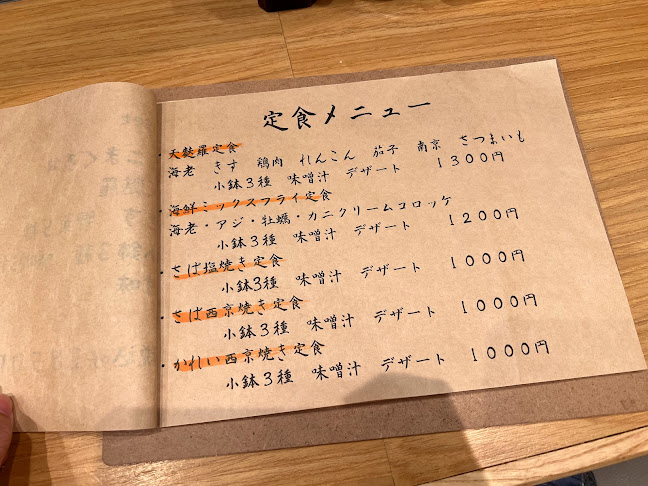 定食メニュー
・天麩羅定食
海老 きす 鶏肉 れんこん 茄子 南京 さつまいも
小鉢3種 味噌汁 デザート 1300円
・海鮮ミックスフライ定食
海老・アジ・牡蠣・カニクリームコロッケ
小鉢3種 味噌汁 デザート 1200円
・さば塩焼き定食
小鉢3種 味噌汁 デザート 1000円
・さば西京焼き定食
小鉢3種 味噌汁 デザート 1000円
・かれい西京焼き定食
小鉢3種 味噌汁 デザート 1000円